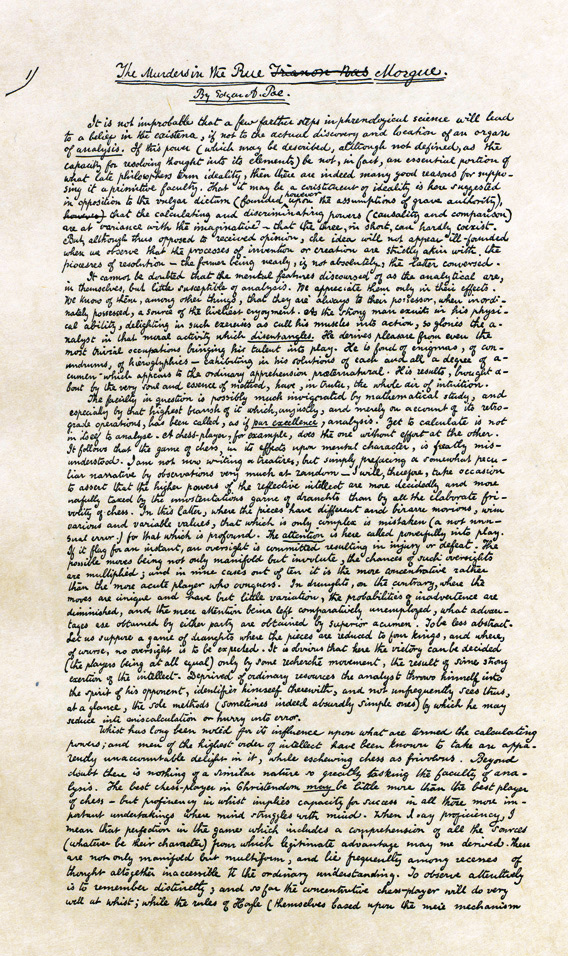 1)
The Murders in the Rue Trianon Bas Morgue.
By Edgar A. Poe.
It is not improbable that a few farther steps in phrenological science will lead
to a belief in the existence, if not to the actual discovery and location of an organ
of analysis. If this power (which may be described, although not defined, as the
capacity for resolving thought into its elements) be not, in fact, an essential portion of
what late philosophers term ideality, then there are indeed many good reasons for suppo-
sing it a primitive faculty. That it may be a constituent of ideality is here suggested
in opposition to the vulgar dictum (founded however upon the assumptions of grave authority),
however, that the calculating and discriminating powers (causality and comparison)
are at variance with the imaginative — that the three, in short, can hardly coexist.
But, although thus opposed to received opinion, the idea will not appear ill-founded
when we observe that the processes of invention or creation are strictly akin with the
processes of resolution — the former being nearly, if not absolutely, the latter conversed.
It cannot be doubted that the mental features discoursed of as the analytical are,
in themselves, but little susceptible of analysis. We appreciate them only in their effects.
We know of them, among other things, that they are always to their possessor, when inordi-
nately possessed, a source of the liveliest enjoyment. As the strong man exults in his physi-
cal ability, delighting in such exercises as call his muscles into action, so glories the a-
nalyst in that moral activity which disentangles. He derives pleasure from even the
most trivial occupations bringing his talent into play. He is fond of enigmas, of con-
undrums, of hieroglyphics — exhibiting in his solutions of each and all a degree of a-
cumen which appears to the ordinary apprehension præternatural. His results, brought a-
bout by the very soul and essence of method, have, in truth, the whole air of intuition.
The faculty in question is possibly much invigorated by mathematical study, and
especially by that highest branch of it which, unjustly, and merely on account of its retro-
grade operations, has been called, as if par excellence, analysis. Yet to calculate is not
in itself to analyse. A chess-player, for example, does the one without effort at the other.
It follows that the game of chess, in its effects upon mental character, is greatly mis-
understood. I am not now writing a treatise, but simply prefacing a somewhat pecu-
liar narrative by observations very much at random — I will, therefore, take occasion
to assert that the higher powers of the reflective intellect are more decidedly and more
usefully taxed by the unostentatious game of draughts than by all the elaborate fri-
volity of chess. In this latter, where the pieces have different and bizarre motions, with
various and variable values, that which is only complex is mistaken (a not unu-
sual error) for that which is profound. The attention is here called powerfully into play.
If it flag for an instant, an oversight is committed resulting in injury or defeat. The
possible moves being not only manifold but involute, the chances of such oversights
are multiplied; and in nine cases out of ten it is the more concentrative rather
than the more acute player who conquers. In draughts, on the contrary, where the
moves are unique and have but little variation, the probabilities of inadvertence are
diminished, and the mere attention being left comparatively unemployed, what advan-
tages are obtained by either party are obtained by superior acumen. To be less abstract.
Let us suppose a game of draughts where the pieces are reduced to four kings, and where,
of course, no oversight is to be expected. It is obvious that here the victory can be decided
(the players being at all equal) only by some recherché movement, the result of some strong
exertion of the intellect. Deprived of ordinary resources the analyst throws himself into
the spirit of his opponent, identifies himself therewith, and not unfrequently sees thus,
at a glance, the sole methods (sometimes indeed absurdly simple ones) by which he may
seduce into miscalculation or hurry into error.
Whist has long been noted for its influence upon what are termed the calculating
powers; and men of the highest order of intellect have been known to take an appa-
rently unaccountable delight in it, while eschewing chess as frivolous. Beyond
doubt there is nothing of a similar nature so greatly tasking the faculty of ana-
lysis. The best chess-player in Christendom may be little more than the best player
of chess — but proficiency in whist implies capacity for success in all those more im-
portant undertakings where mind struggles with mind. When I say proficiency, I
mean that perfection in the game which includes a comprehension of all the sources
(whatever be their character) from which legitimate advantage may be derived. These
are not only manifold but multiform, and lie frequently among recesses of
thought altogether inaccessible to the ordinary understanding. To observe attentively
is to remember distinctly; and so far the concentrative chess-player will do very
well at whist; while the rules of Hoyle (themselves based upon the mere mechanism